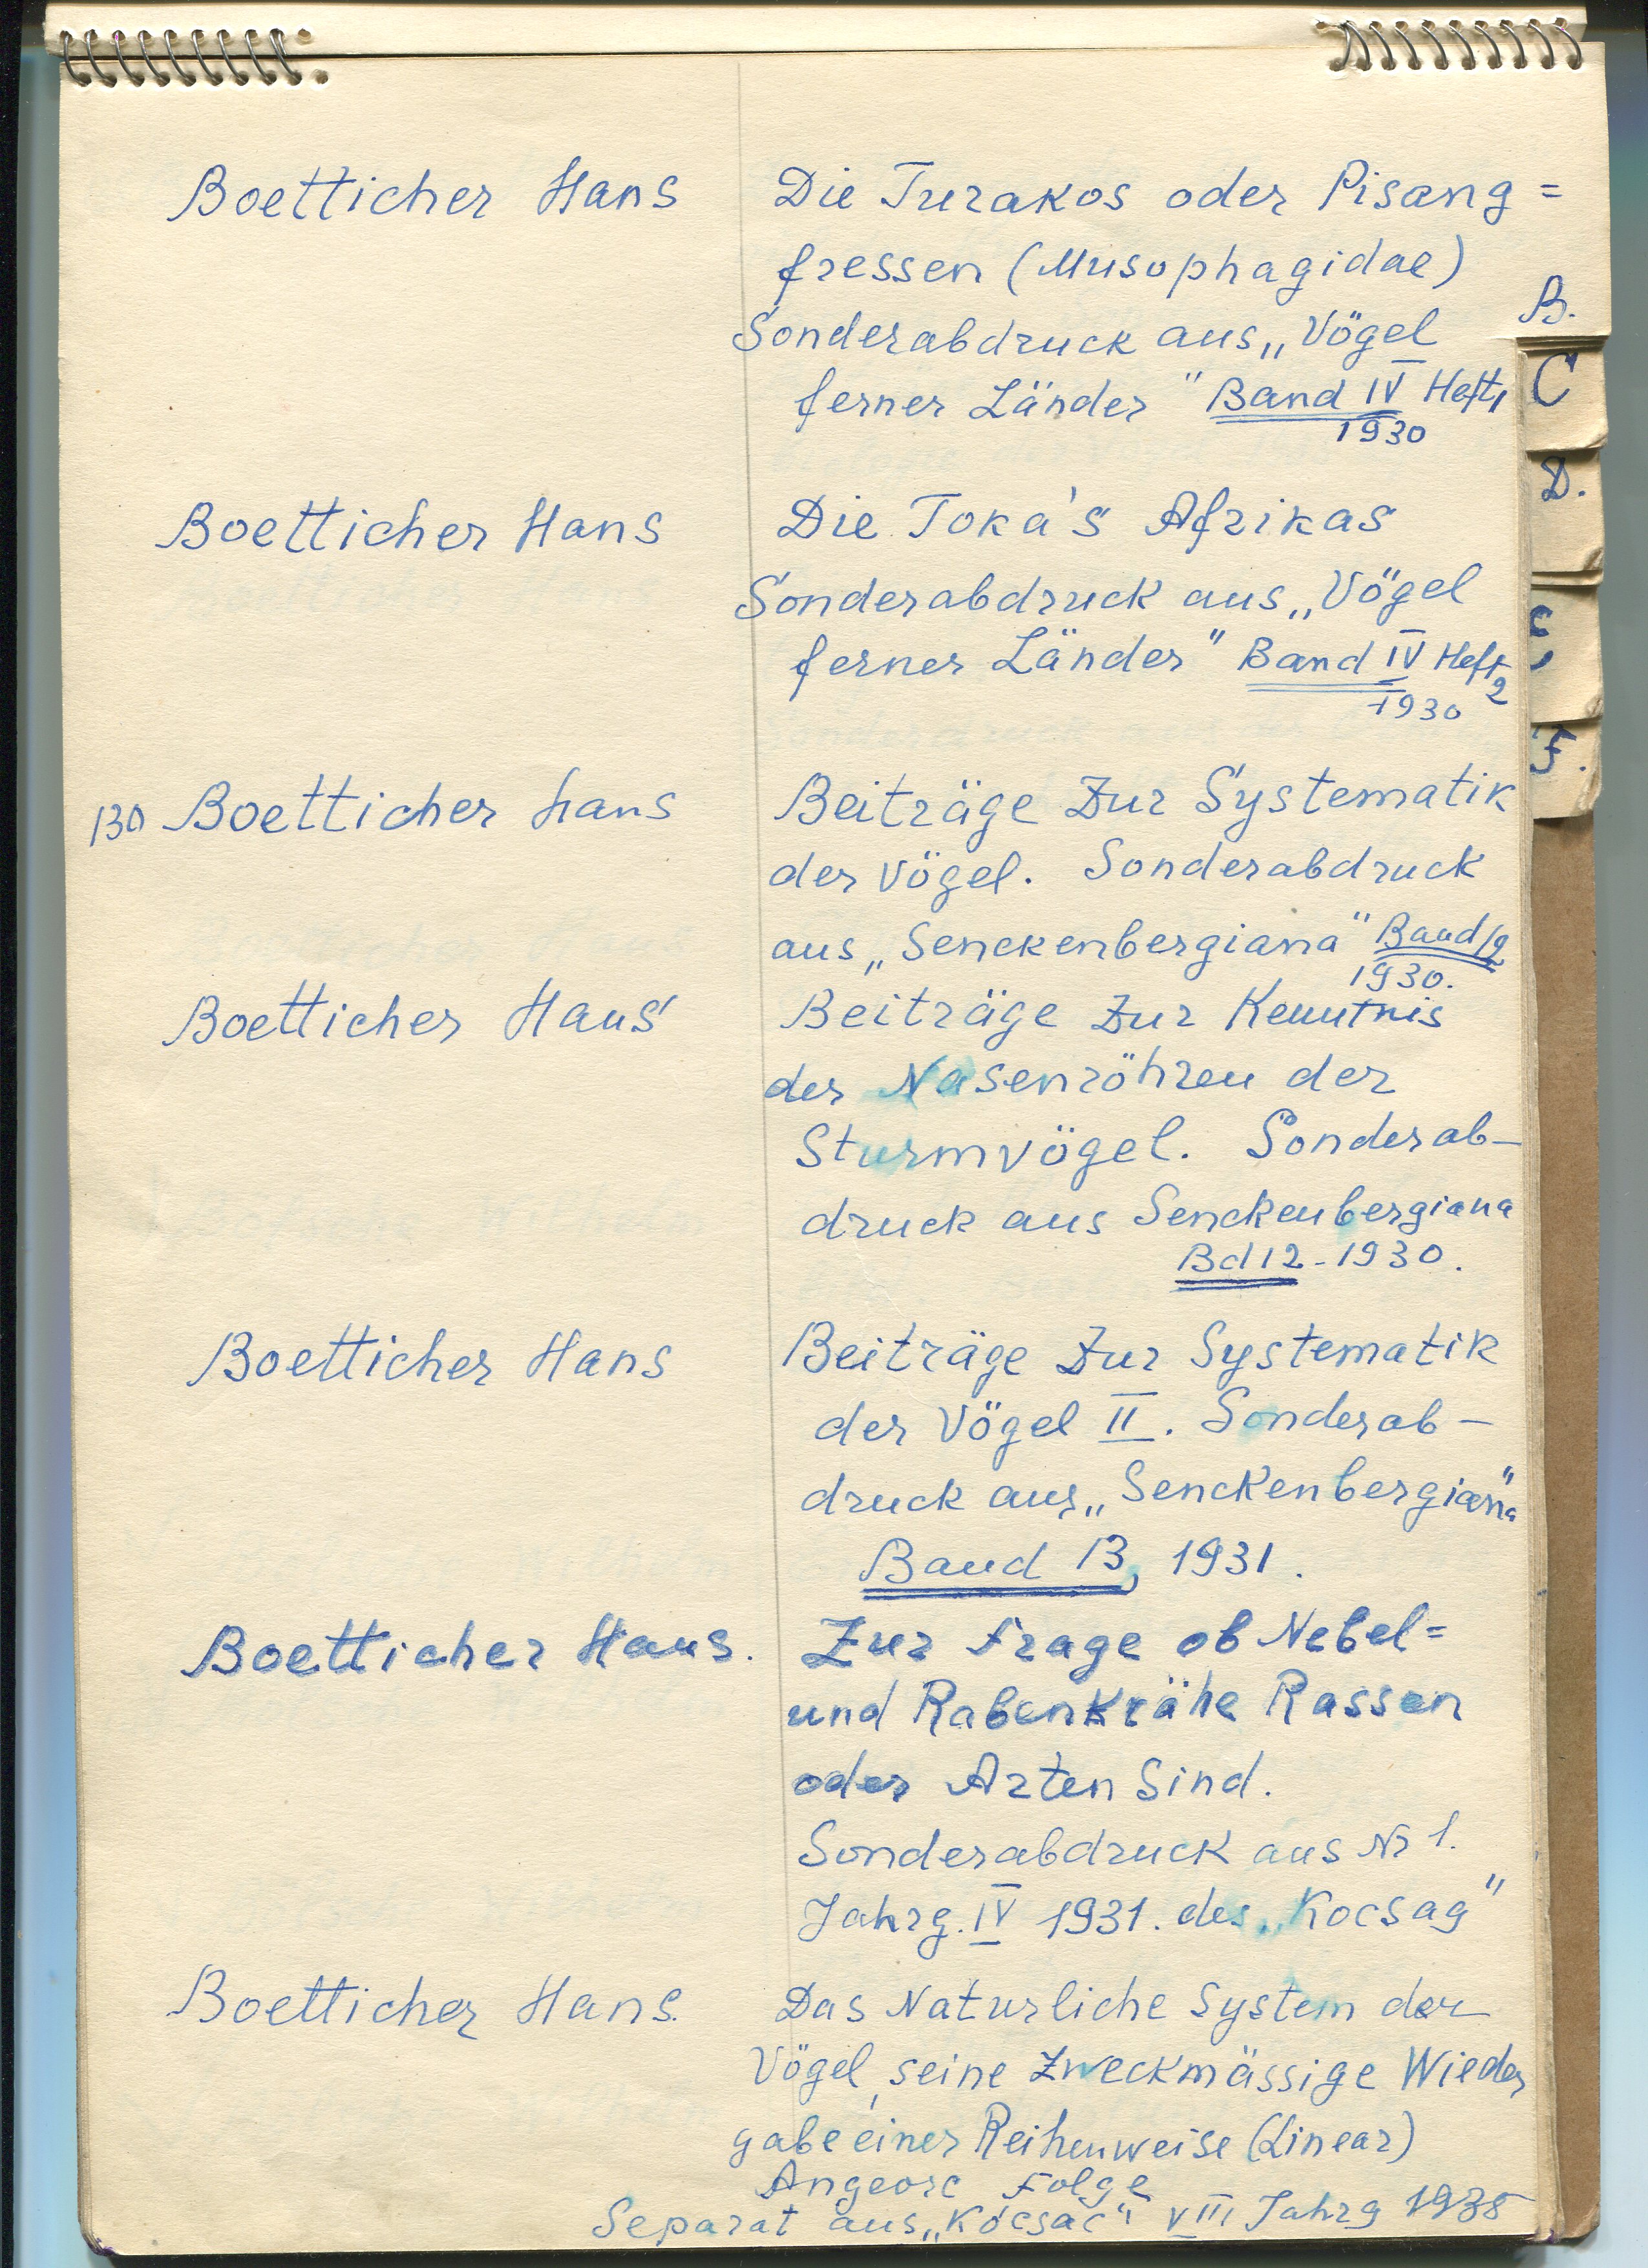 Boetticher Hans
Die Turakos oder Pisang=
fressen (Musophagidae)
Sonderabdruck aus „Vögel
ferner Länder" Band IV Heft 1
1930
Boetticher Hans
Die Toka's Afrikas
Sonderabdruck aus „Vögel
ferner Länder" Band IV Heft 2
1930
130 Boetticher Hans
Beiträge Zur Systematik
der Vögel. Sonderabdruck
aus „Senckenbergiana" Band 12
1930.
Boetticher Hans
Beiträge Zur Kenntnis
der Nasenröhren der
Sturmvögel. Sonderab-
druck aus Senckenbergiana
Bd 12 - 1930.
Boetticher Hans
Beiträge Zur Systematik
der Vögel II. Sonderab-
druck aus „Senckenbergiana"
Band 13, 1931.
Boetticher Hans.
Zur Frage ob Nebel=
und Rabenkrähe Rassen
oder Arten Sind.
Sonderabdruck aus Nr 1.
Jahrg. IV 1931. des „Kocsag"
Boetticher Hans.
Das Naturliche System der
Vögel, seine Zweckmässige Wieder
gabe einer Reihenweise (Linear)
Angeorc Folge
Separat aus „Kócsac" VIII Jahrg 1935
B.
C
D.
F.